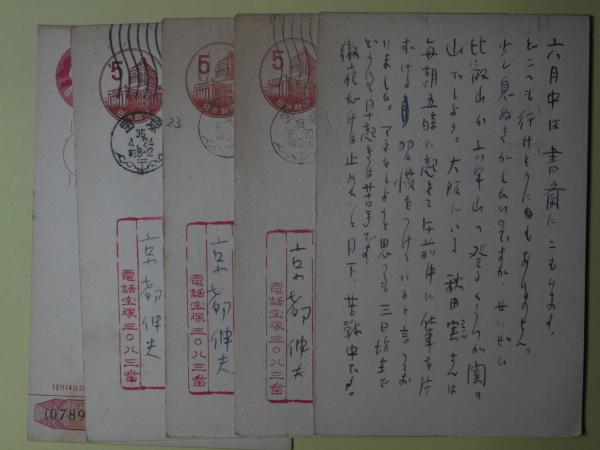 六月中は書斎にこもります。
どこへも行けそうにもありません。
少し息ぬきがしたいのですが、せいぜい
比叡山か六甲山へ登るくらいが関の
山でしょう。大阪にいる秋田実さんは
毎朝五時に起きて午前中に仕事を片
ずける習慣をつけていると言ってお
りました。マネをしようと思っても三日坊主で
どうにも早起きは苦手です。
徹夜だけは止めたいと目下、苦戦中です。
5
日本郵便
35
4.24
前8-12
京都伸夫
電話宝塚三〇八三番
5
日本郵便
23
京都伸夫
電話宝塚三〇八三番
5
日本郵便
京都伸夫
電話宝塚三〇八三番
12月14日以
(0789